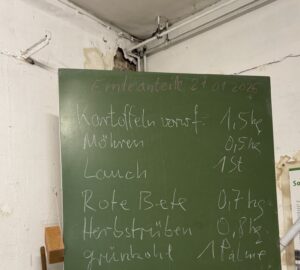 Ernteanteile 21 01 2026
Kartoffeln vorw.f. 1,5 kg
Möhren 0,5 kg
Lauch 1 St
Rote Bete 0,7 kg
Herbstrüben 0,8 kg
grünkohl 1 Palme